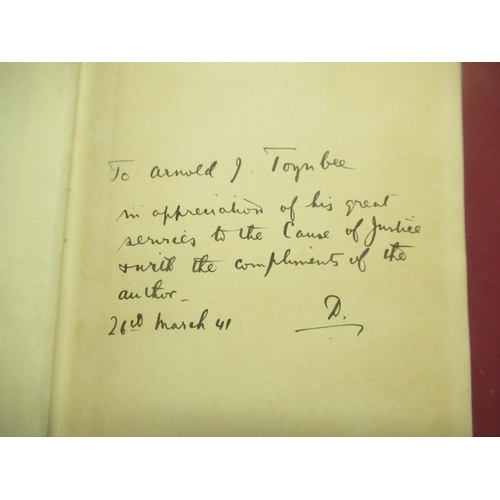 To Arnold J. Toynbee
in appreciation of his great
services to the Cause of Justice
& with the compliments of the
author -
26th March 41 D.